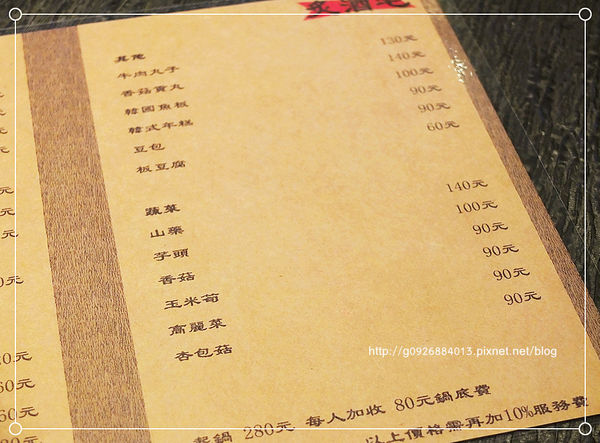 其他
牛肉丸子 130元
香菇貢丸 140元
韓國魚板 100元
韓式年糕 90元
豆包 90元
板豆腐 60元
蔬菜
山藥 140元
芋頭 100元
香菇 90元
玉米筍 90元
高麗菜 90元
杏包菇 90元
起鍋 280元 每人加收 80元鍋底費
以上價格需再加10%服務費
http://g0926884013.pixnet.net/blog